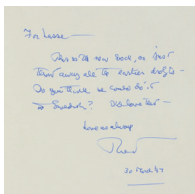 For Lasse —
This is the new book, so just
throw away all the earlier drafts —
Do you think we could do it
in Swedish? We love her —
Love as always